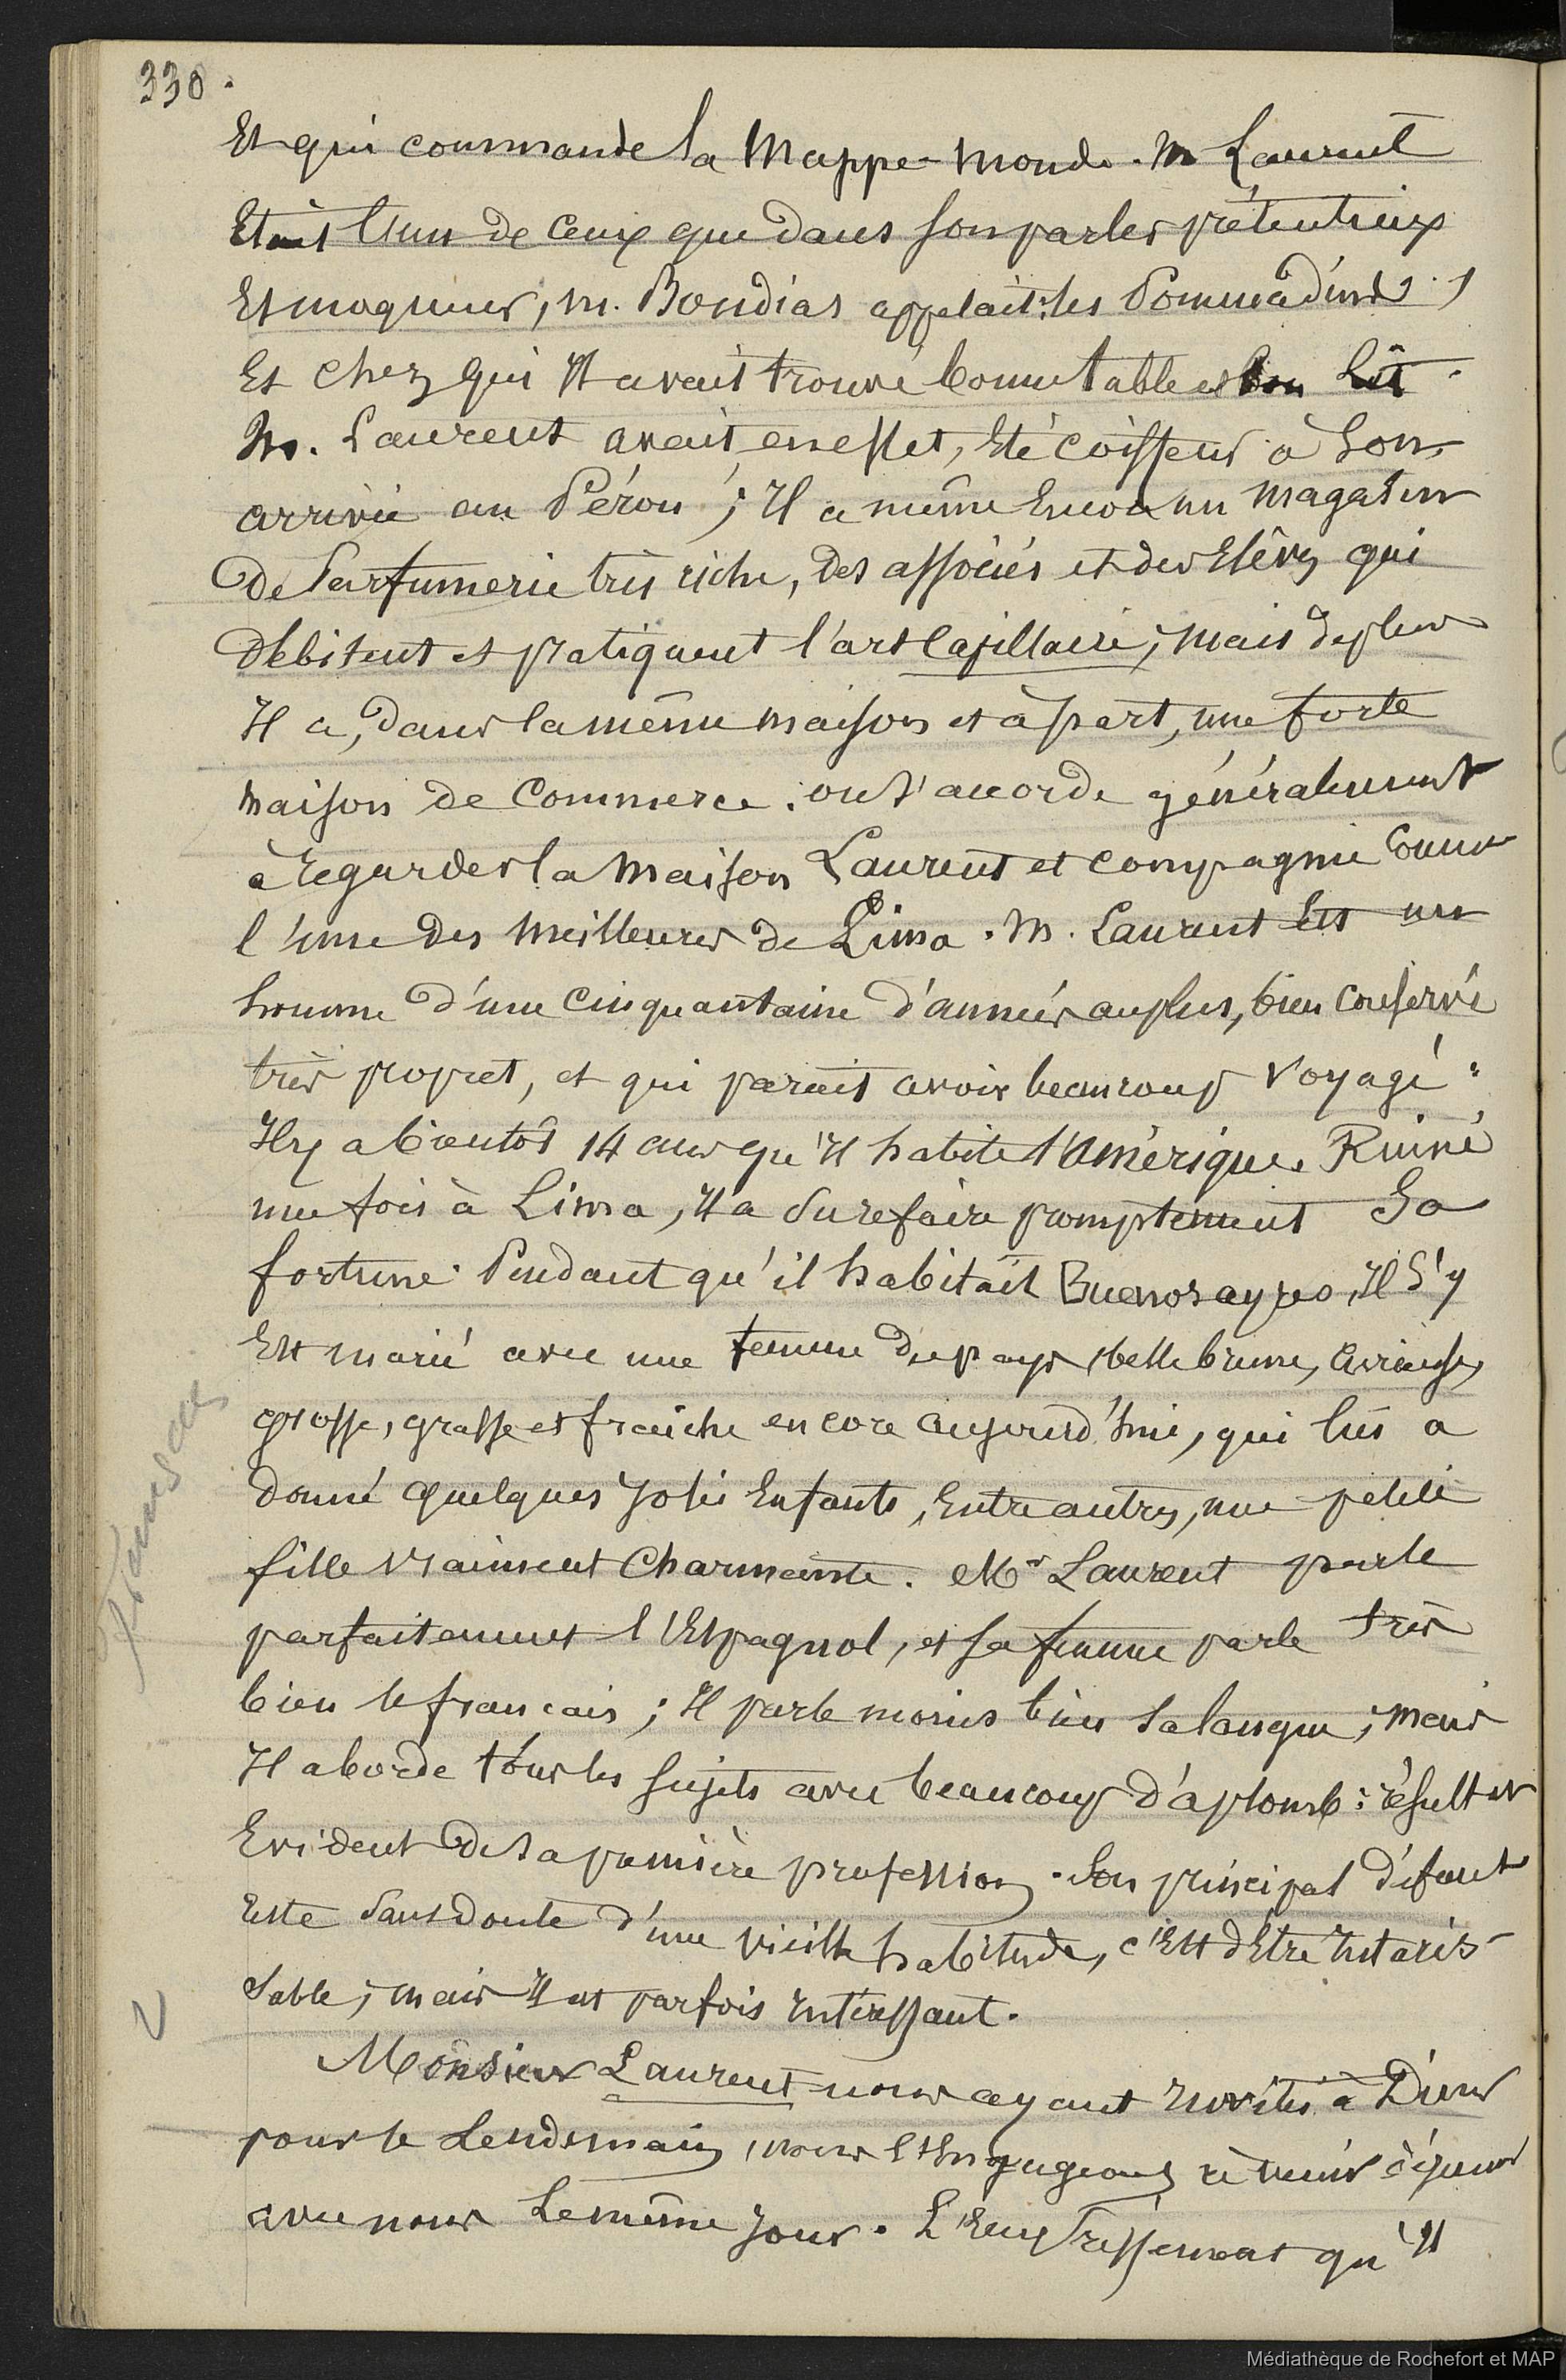 330.
Et qui commande la Mappe-monde. M Laurent
Etait l'un de ceux que dans son parler prétentieux
Et moqueur, M. Bondias appelait: les Pommadins,
Et chez qui Il avait trouvé bonne table et bon Lit.
M. Laurent avait en effet, Eté coiffeur à Son
arrivée au Pérou; Il a même Encore un magasin
de Parfumerie très riche, des associés et des Elèves qui
débitent et pratiquent l'art Capillaire; mais de plus
Il a, dans la même maison et à part, une forte
maison de Commerce. on s'accorde généralement
à Regarder la Maison Laurent et compagnie Comme
l'une des meilleures de Lima. M. Laurent Est un
homme d'une Cinquantaine d'années au plus, bien Conservé
très propret, et qui parait avoir beaucoup Voyagé.
Il y a bientôt 14 ans qu'Il habite l'Amérique. Ruiné
une fois à Lima, Il a Su refaire promptement Sa
fortune. Pendant qu'il habitait Buenos ayres, Il S'y
Est marié avec une femme du pays, belle brune,
grosse, grasse et fraiche encore aujourd'hui, qui lui a
donné quelques Jolis Enfants, Entre autres, une petite
fille vraiment Charmante. Mr Laurent parle
parfaitement l'Espagnol, et sa femme parle très
bien le français; Il parle moins bien sa langue; mais
Il aborde tous les sujets avec beaucoup d'aplomb: résultat
Evident de sa première profession. Son principal défaut
Reste Sans doute d'une vieille habitude, c'Est d'Etre Intaris-
sable; mais Il est parfois Intéressant.
Monsieur Laurent nous ayant Invités à Diner
pour le Lendemain, nous l'Engageons à venir déjeuner
avec nous Le même Jour. L'Empressement qu'Il
Médiathèque de Rochefort et MAP